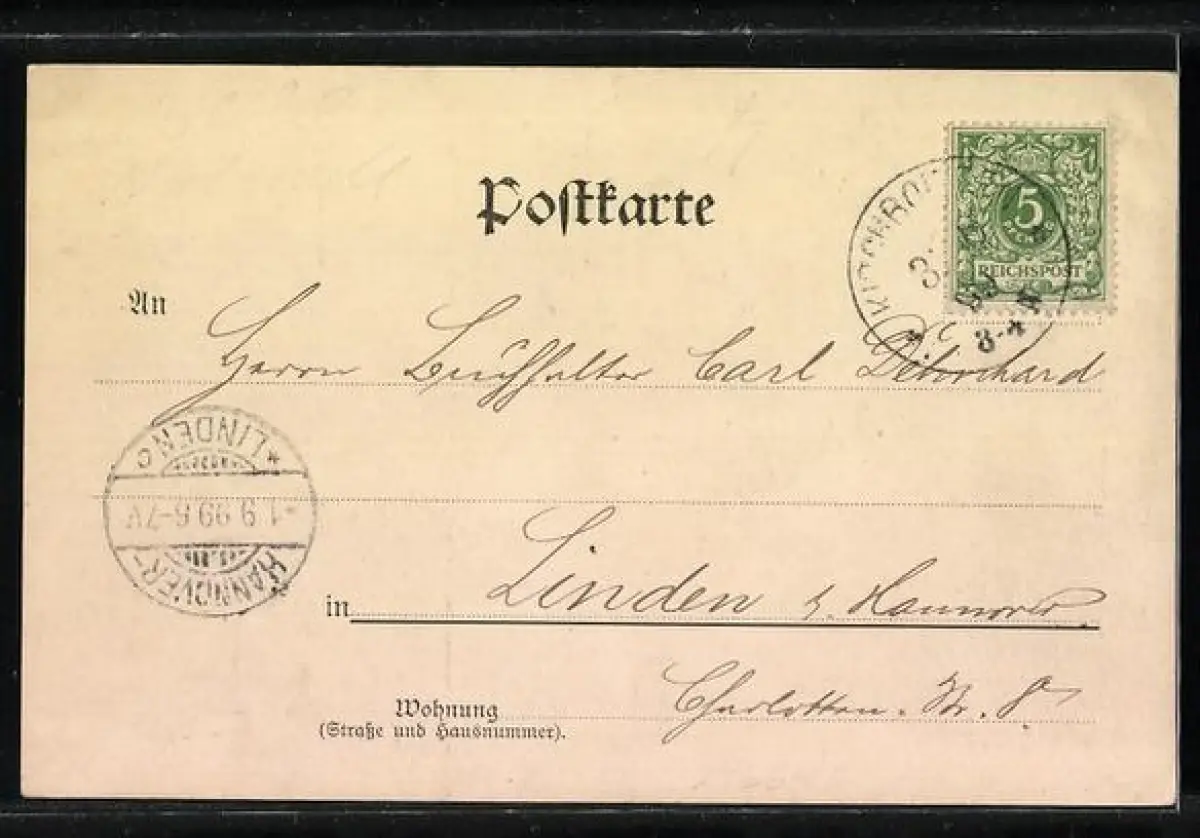 Postkarte
5
REICHSPOST
3-4 N
An
Herrn Buchhalter Carl
*LINDEN c
1.9.99.6-7V
HANNOVER-
in Linden b. Hannover.
Wohnung Charlotten. Str. 8
(Straße und Hausnummer).